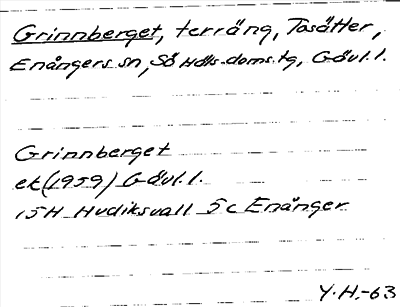 Grinnberget, terräng, Tosätter,
Enångers sn, Sö Häls. doms.tg, Gävl.l.
Grinnberget
ek (1959) Gävl.l.
15H Hudiksvall 5c Enånger
Y.H.-63